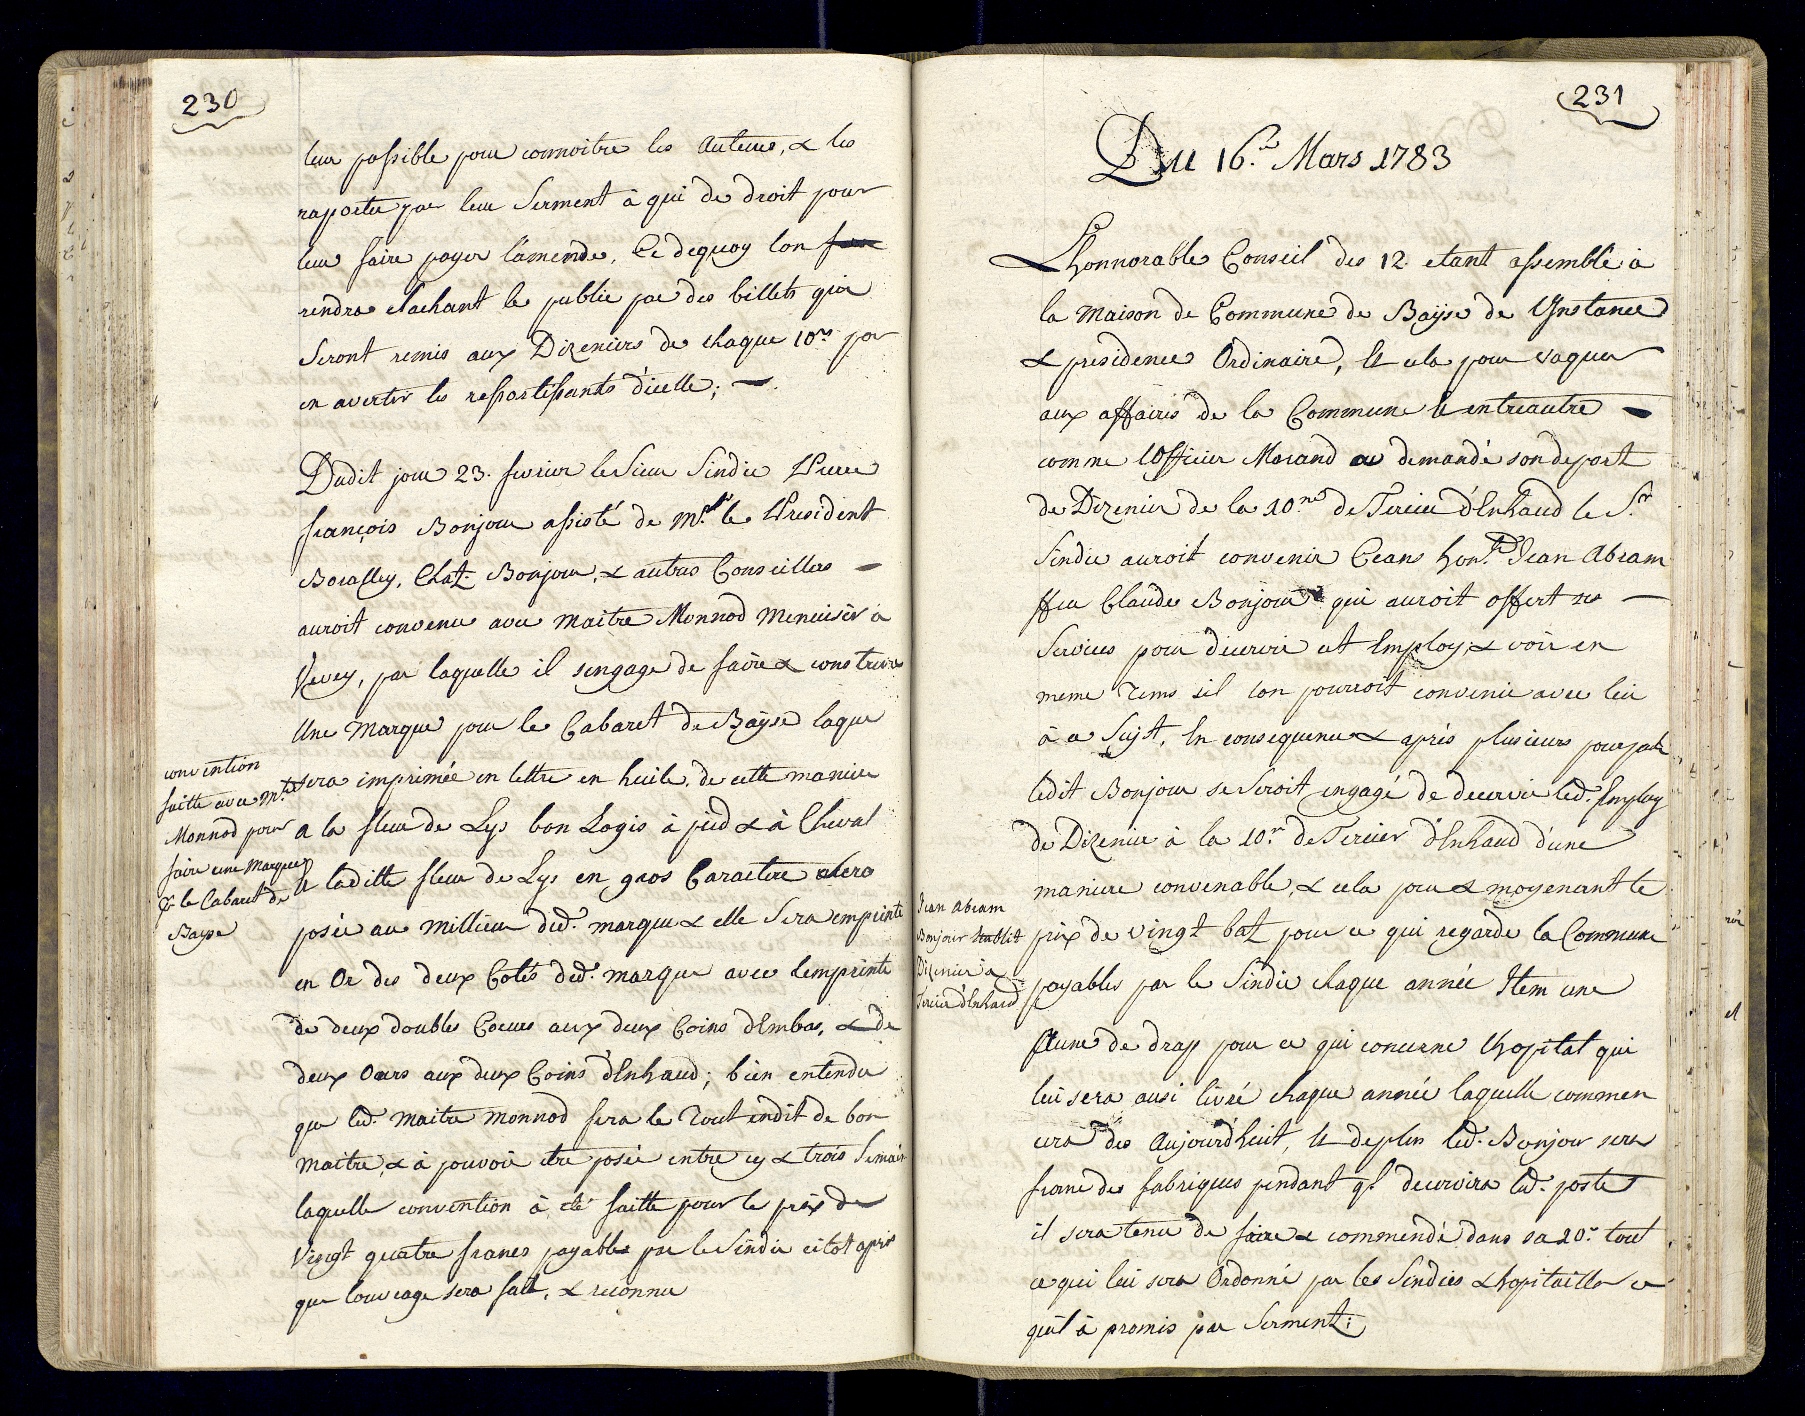 230
leur possible pour connoitre les Auteurs, & les
raporter par leur Serment à qui de droit pour
leur faire payer l'amende, Ce dequoy l'on
rendra sachant le public par des billets qui
Seront remis aux Dizeniers de chaque 10ne par
en avertir les ressortissants d'icelle;
Dudit jour 23. fevrier le Sieur Sindic Pierre
françois Bonjour assisté de Mr. le President
Chat. Bonjour, & autres Conseillers
auroit convenu avec maitre Monnod Menuisier à
Vevey, par laquelle il s'engage de faire & construire
Une Marque pour le Cabaret de Baÿse laque
sera imprimée en lettre en huile, de cette maniere
a la fleur de Lys bon Logis à pied & à Cheval
et ladite fleur de Lys en gros Caractere sera
posée au millieu dud. marque & elle Sera empreinte
en Or des deux Cotés dud. marque avec lemprinte
de deux doubles Coeurs aux deux Coins d'Embas, & de
deux Ours aux deux Coins d'Enhaud; bien entendu
que led. Maitre monnod fera le Tout endit de bon
maitre, & à pouvoir etre posée entre cy & trois Semain
laquelle convention à eté faitte pour le prix de
Vingt quatre francs payable par le Sindic citot après
que louvrage sera fait, & reconnu
convention
faitte avec Mre
Monnod pour
faire une Marque
pr le Cabaret de
Bayse
231
Du 16.e Mars 1783
L'honnorable Conseil des 12. etant assemblé à
la Maison de Commune de Baÿse de L'Instance
& presidence Ordinaire, Et cela pour vaquer
aux affaires de la Commune & entreautre
comme l'Officier Morand a demandé son deport
de Dizenier de la 10.ne de Tercier d'Enhaud le Sr.
Sindic auroit convenir Ceans hon.ble Jean Abram
ffeu Claude Bonjour qui auroit offert ses
Services pour decervir cet Employ, & voir en
meme Tems sil lon pourroit convenir avec lui
à ce Sujet, En consequence & après plusieurs pourparl
ledit Bonjour se seroit engagé de decervir led. Employ
de Dizenier à la 10.e de Tercier d'Enhaud d'une
maniere convenable, & cela pour & moyenant le
prix de vingt batz pour ce qui regarde la Commune
payables par le Sindic chaque année Item une
Aune de drap pour ce qui concerne l'hopital qui
lui sera ausi livré chaque année laquelle commen
cera des Aujourdhuit, Et deplus led. Bonjour sera
franc des fabriques pendant qu'il decervira led. poste
il sera tenu de faire & commendé dans sa 10.e tout
ce qui lui sera Ordonné par les Sindics & hopitailler ce
qu'il à promis par Serment;
Jean Abram
Bonjour Etablit
Dizenier à
Tercier d'Enhaud